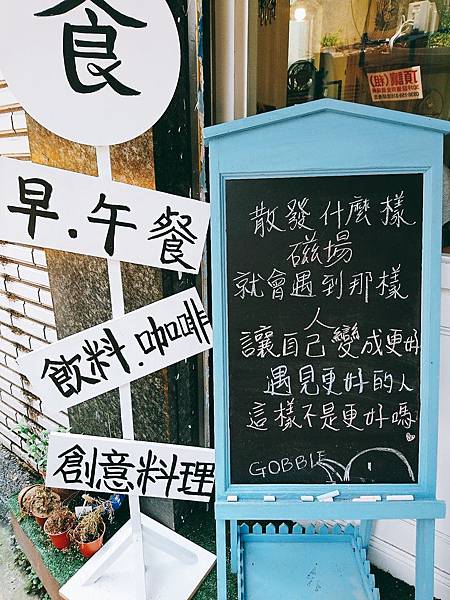 食
早.午餐
飲料.咖啡
創意料理
散發什麼樣
磁場
就會遇到那樣
人
讓自己變成更好
遇見更好的人
這樣不是更好嗎
GOBBLE
頂讓(租)